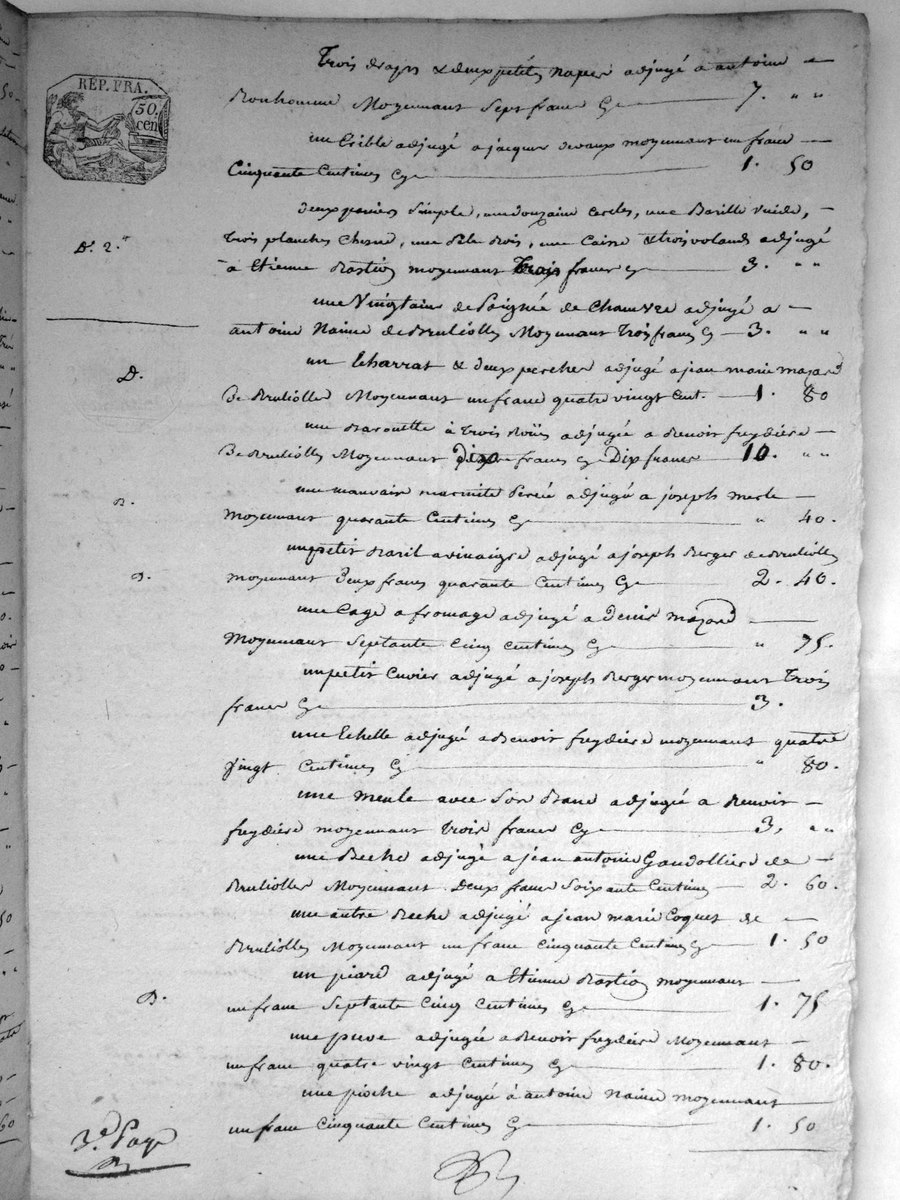 REP. FRA.
50.
cen
Trois draps & deux petits napes adjugé a antoine
Bonhomme Moyennant Sept franc Cy 7. " "
un Crible adjugé a jacques devaux moyennant un franc
Cinquante Centimes Cy 1. 50
Deux paniers Simple, une douzain Cercles, une Barille Vuide,
D. 2.
trois planches Chesne, une Pele bois, une Caisse & trois volands adjugé
à Etienne moyennant Trois francs Cy 3. " "
une Vingtaine de Poignée de Chauvre adjugé a
antoine Naime de Bruliolles Moyennant Trois francs Cy 3. " "
un Echarrat & deux perches adjugé a jean marie mazard
D.
De Bruliolles Moyennant un franc quatre vingt Cent. 1. 80
une Barouette à trois Roües adjugée a Benoit freydiere
De Bruliolles Moyennant Dix francs Cy Dix francs 10. " "
une mauvaise marmite Percée adjugée a joseph merle
B.
moyennant quarante Centimes Cy " 40.
un petit Baril a vinaigre adjugé a joseph Berger de Brulioles
D.
moyennant Deux francs quarante Centimes Cy 2. 40.
une Cage a fromage adjugé a Denis mazard
Moyennant Septante Cinq Centimes Cy " 75.
un petit Cuvier adjugé a joseph Berger moyennant Trois
francs Cy 3.
une Echelle adjugé a Benoit freydiere moyennant quatre
Vingt Centimes Cy " 80.
une meule avec Son Banc adjugée a Benoit
freydiere moyennant trois francs Cy 3. " "
une Beche adjugé a jean antoine Gaudolliere de
Brulioles Moyennant Deux francs Soixante Centimes 2. 60.
une autre Beche adjugé a jean marie Coquet de
Brulioles Moyennant un franc Cinquante Centimes Cy 1. 50
un piard adjugé a Etienne moyennant
B.
un franc Septante Cinq Centimes Cy 1. 75
une adjugée a Benoit freydiere Moyennant
un franc quatre vingt Centimes Cy 1. 80.
une pioche adjugé à antoine Naime moyennant
un franc Cinquante Centimes Cy 1. 50
3.e Page